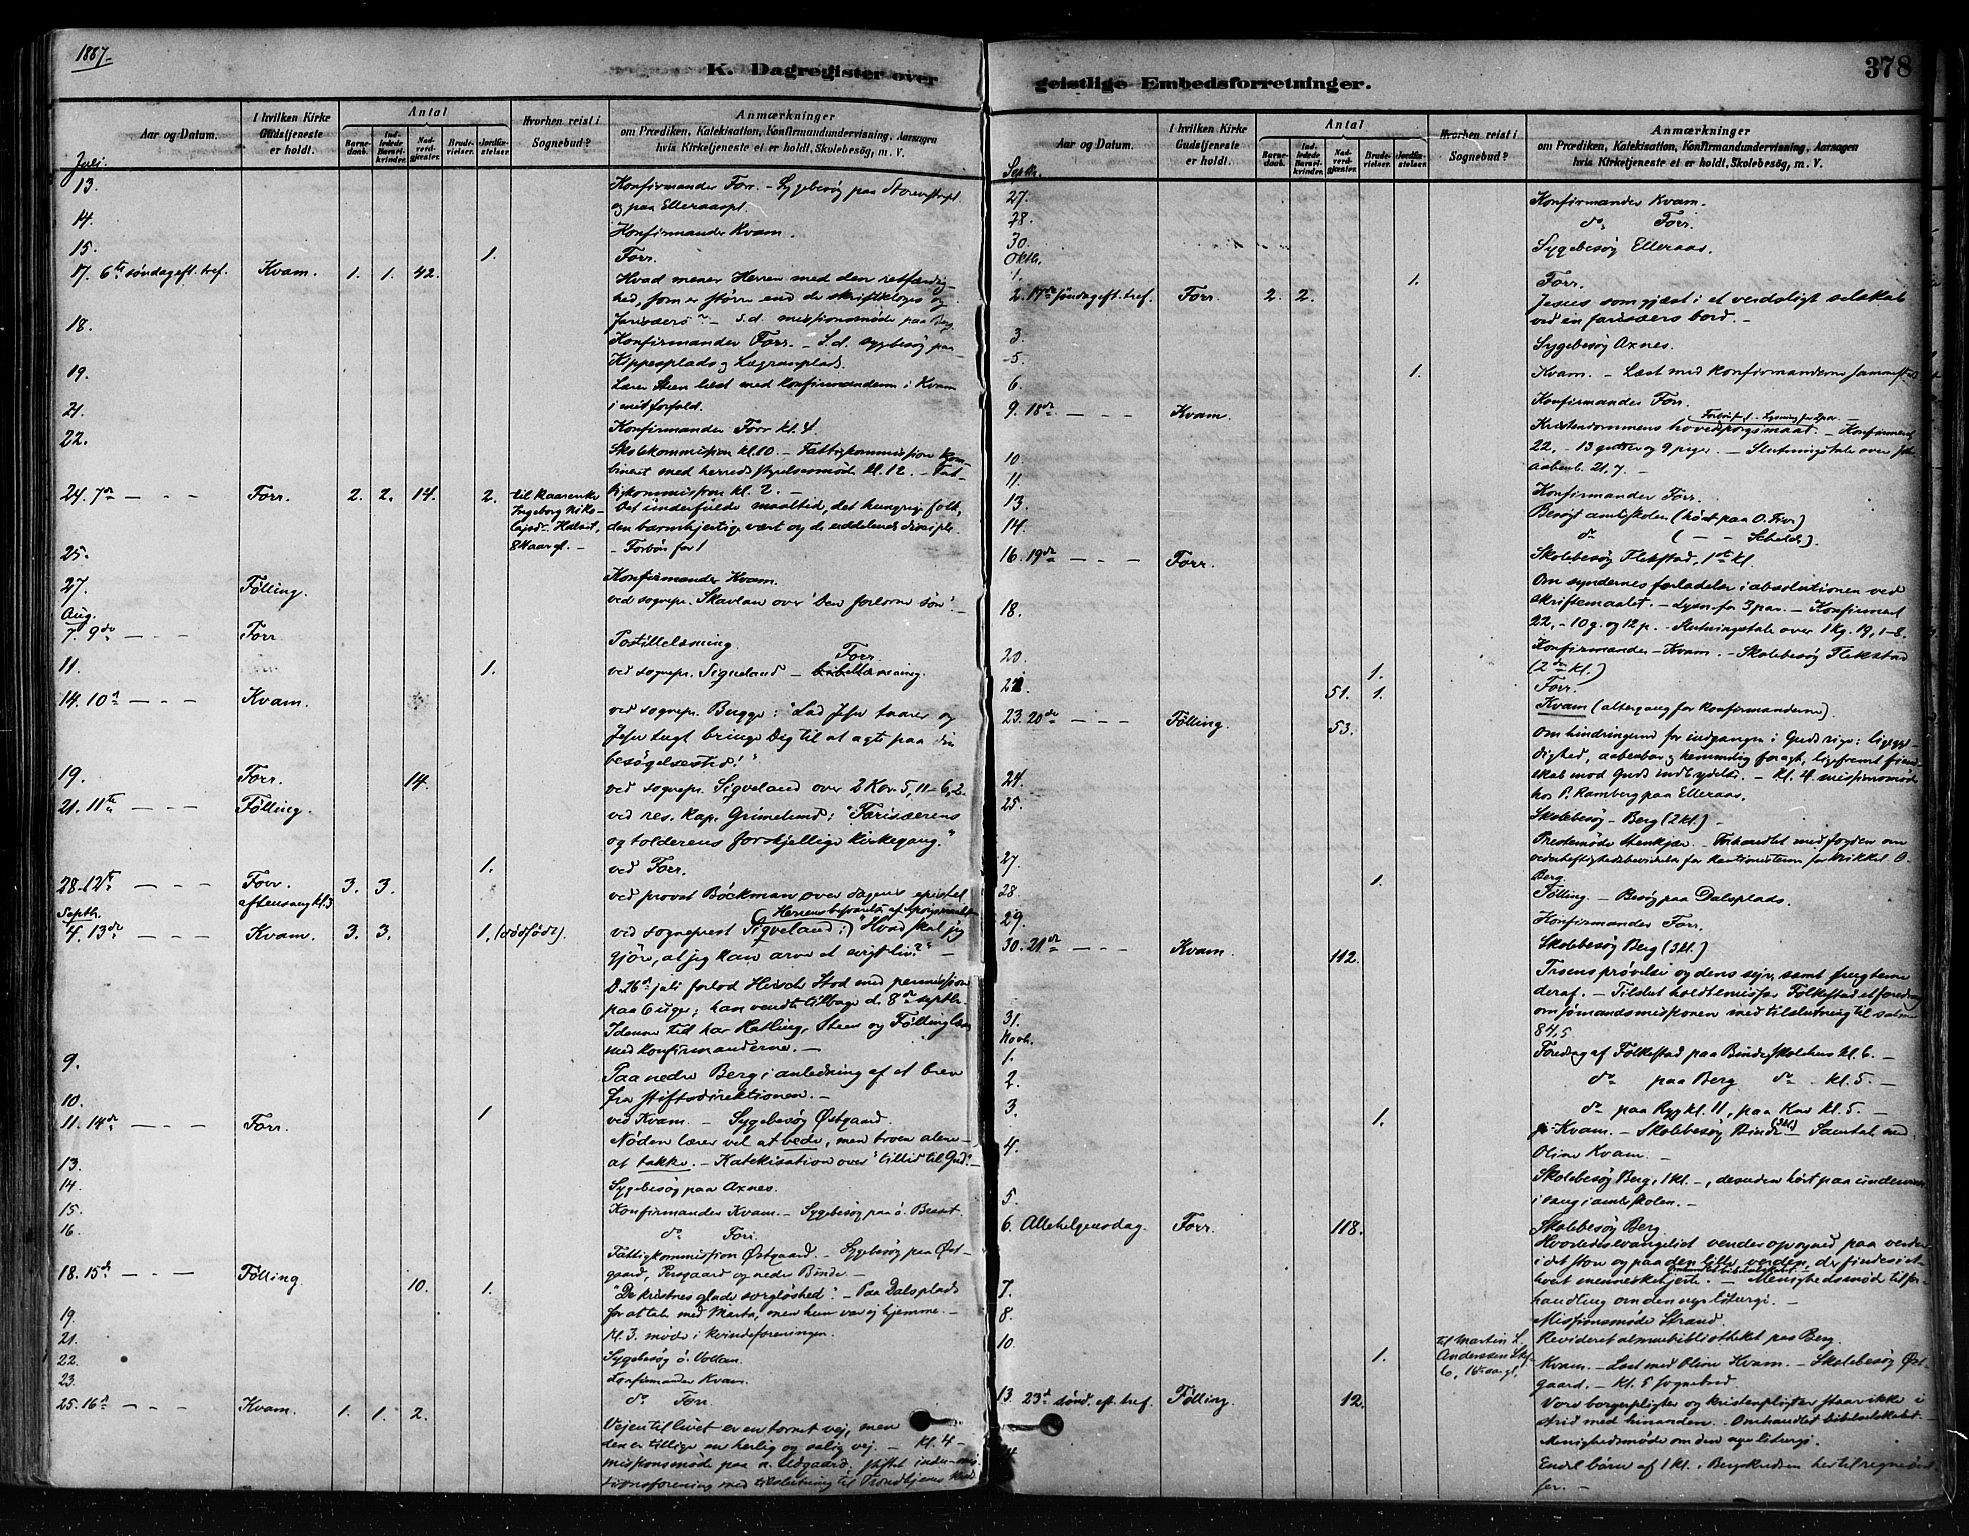 1887.
K. Dagregister over
geistlige Embedsforretninger.
378
Aar og Datum.
I hvilken Kirke Gudstjeneste er holdt.
Antal
Barnedaab.
Indledede Barselkvinder.
Nadverdgjester.
Brudevielser.
Jordfæstelser.
Hvorhen reist i Sognebud?
Anmærkninger
om Prædiken, Katekisation, Konfirmandundervisning, Aarsagen
hvis Kirketjeneste ei er holdt, Skolebesög, m. V.
Juli.
13. Konfirmander Forr. - Sygebesøg paa
og paa Elleraaspl.
14. Konfirmander Kvam.
15. 1. Forr.
17. 6te søndag eft. tref. Kvam. 1. 1. 42. Hvad mener Herren med den retfærdig-
hed, som er større end de skriftkloges og
farisæers? - S.d. missionsmøde paa Berg.
18. Konfirmander Forr. - S.d. sygebesøg paa
Kippesplads og Lægranplads.
19. Lærer Steen læst med konfirmanderne i Kvam
i mit forfald.
21. Konfirmander Forr kl. 4.
22. Skolekommission kl. 10. - Fattigkommission kom-
bineret med herredsstyrelsesmøde kl. 12. - Fat-
tigkommission kl. 2. -
24. 7de — - - Forr. 2. 2. 14. 2. til
Ingeborg
84 aar gl. -
Det underfulde maaltid, det hungrige folk,
den barmhjertige vært og de uddelende disciple.
- Forbøn for 1
25. Konfirmander Kvam.
27. Følling. ved sognepr. Skavlan over "Den forlorne søn".
Aug.
7. 9de — - - Forr Postillelæsning
11. 1. Forr.
ved sognepr. Sigveland - bibellæsning.
14. 10de — - - Kvam. ved sognepr. Bugge: "Lad Jesu taarer og
Jesu tugt bringe Dig til at agte paa din
besøgelsestid!"
19. Forr. 14. ved sognepr. Sigveland over 2 Kor. 5, 11 - 6, 2.
21. 11te — - - Følling. ved res. kap. Grimelund: "Farisæerens
og tolderens forskjellige kirkegang."
1. ved Forr.
28. 12te — - - Forr. 3. 3. ved provst Böckman over dagens epistel
aftensang kl. 3
Septbr.
4. 13de — - - Kvam. 3. 3. 1. (dødfødt). ved sogneprest Sigveland: "Hvad skal jeg
gjöre, at jeg kan arve et evigt liv?" -
D. 26de juli forlod Hirsch Stod med permission
paa 6 uger; han vendte tilbage d. 8de septbr.
I denne tid har Hatling, Steen og Følling læst
med konfirmanderne. -
9. Paa nedre Berg i anledning af et brev
fra stiftsdirektionen. -
10. 1. ved Kvam. - Sygebesøg Østgaard.
11. 14de — - - Forr. Nöden lærer vel at bede, men troen alene
at takke. - Katekisation over "tillid til Gud". -
13. Sygebesøg paa Axnes.
14. Konfirmander Kvam. - Sygebesøg paa ö.
15. do Forr.
16. Fattigkommission Østgaard. - Sygebesøg paa Øst-
gaard, Persgaard og nedre Binde. -
18. 15de — - - Følling 10. 1. "De kristnes glade sorgløshed". - Paa Dalsplads
for at tale med Marta, men hun var ej hjemme. -
19. kl. 3. møde i kvindeforeningen.
21. Sygebesøg ö. Vollan.
22. Konfirmander Kvam.
23. do Forr.
25. 16de — - - Kvam. 1. 1. 2. Vejen til livet er en tornet vej, men
den er tillige en herlig og salig vej. - Kl. 4 -
missionsmøde paa n. Udgaard; stiftet
tionsforening med tilslutning til Trondhjems
Aar og Datum.
I hvilken Kirke Gudstjeneste er holdt.
Antal
Barnedaab.
Indledede Barselkvinder.
Nadverdgjester.
Brudevielser.
Jordfæstelser.
Hvorhen reist i Sognebud?
Anmærkninger
om Prædiken, Katekisation, Konfirmandundervisning, Aarsagen
hvis Kirketjeneste ei er holdt, Skolebesög, m. V.
Septbr.
27. Konfirmander Kvam.
28. do Forr.
30. Sygebesøg Elleraas.
Oktbr.
1. 1. Forr.
2. 17de søndag eft. tref. Forr. 2. 2. Jesus som gjæst i et verdsligt selskab
ved en farisæers bord. -
3. Sygebesøg Axnes.
5. 1. Kvam. - Læst med konfirmanderne sammesteds
6. Konfirmander Forr.
9. 18de — - - Kvam. Forbøn for 1. - Lysning for 2 par. -
Kristendommens hovedspørgsmaal. - Konfirmeret
22, - 13 gutter og 9 piger. - Slutningstale over Joh.
aabenb. 21, 7. -
10. Konfirmander Forr.
11. Besøgt amtsskolen (hørt paa O. Five)
13. do ( - - ).
14. Skolebesøg Flekstad, 1ste kl.
16. 19de — - - Forr. Om syndernes forladelse i absolutionen ved
skriftemaalet. - Lysn. for 3 par. - Konfirmeret
22, - 10 g. og 12 p. - Slutningstale over 1 Kg. 19, 1-8.
18. Konfirmander - Kvam. - Skolebesøg Flekstad
(2den kl.)
20. 1. Forr.
22. 51. 1. Kvam (altergang for konfirmanderne).
23. 20de — - - Følling. 53. Om hindringerne for indgangen i Guds rige: ligegyl-
dighed, aabenbar og hemmelig foragt, ligefremt fiend-
skab mod Guds indbydelse. - Kl. 4 missionsmøde
hos P. Ramberg paa Elleraas.
24. Skolebesøg - Berg (2 kl.) -
25. Prestemøde Stenkjær. - Forhandlet med fogden om
vederheftighedsbevidnelse for kautionisterne for
Berg.
27. 1. Følling - Besøg paa Dalsplads.
28. Konfirmander Forr.
29. Skolebesøg Berg (3 kl.)
30. 21de — - - Kvam. 112. Troens prøvelse og dens sejr, samt frugterne
deraf. - Tilslut holdt emissær Folkestad et foredrag
om sømandsmissionen med tilslutning til salme
84, 5
31. Foredrag af Folkestad paa Binde skolehus kl. 6. -
Novb.
1. do paa Berg do kl. 5. -
2. do paa Ryg kl. 11, paa Kar kl. 5. -
3. 1. Kvam. - Skolebesøg Binde (3 kl.) - Samtal med
Oline Kvam. -
4. Skolebesøg Berg, 1 kl. -, desuden hørt paa undervisn.
i sang i amtsskolen.
5. Skolebesøg Berg
6. Allehelgensdag. Forr. 118. Hvorledes evangeliet vender op og ned paa verden
i det store og paa den lille verden, der findes i et-
hvert menneskehjerte. - Menighedsmøde til for-
handling om den nye liturgi. -
7. Missionsmøde Strand.
8. Revideret almuebibliotheket paa Berg.
10. 1. til Martin L.
Anderssen
Kvam. - Læst med Oline Kvam. - Skolebesøg Øst-
gaard. - Kl. 5 sognebud
13. 23de sönd. eft. tref. Følling. 12. Vore borgerpligter og kristenpligter staar ikke i
strid med hinanden. - Omhandlet bibelselskabet. -
Menighedsmøde om den nye liturgi.
Endel børn af 1 kl. i Bergskredsen her til